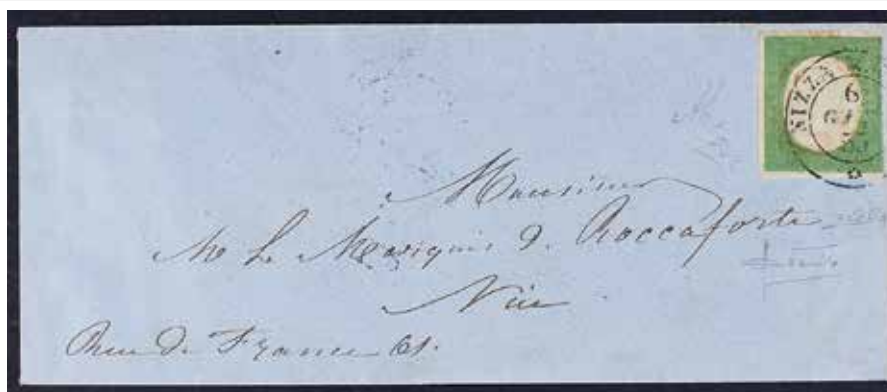 NIZZA
6
Monsieur
M L Marquis d. Roccaforte
Nice
Rue de France 61.